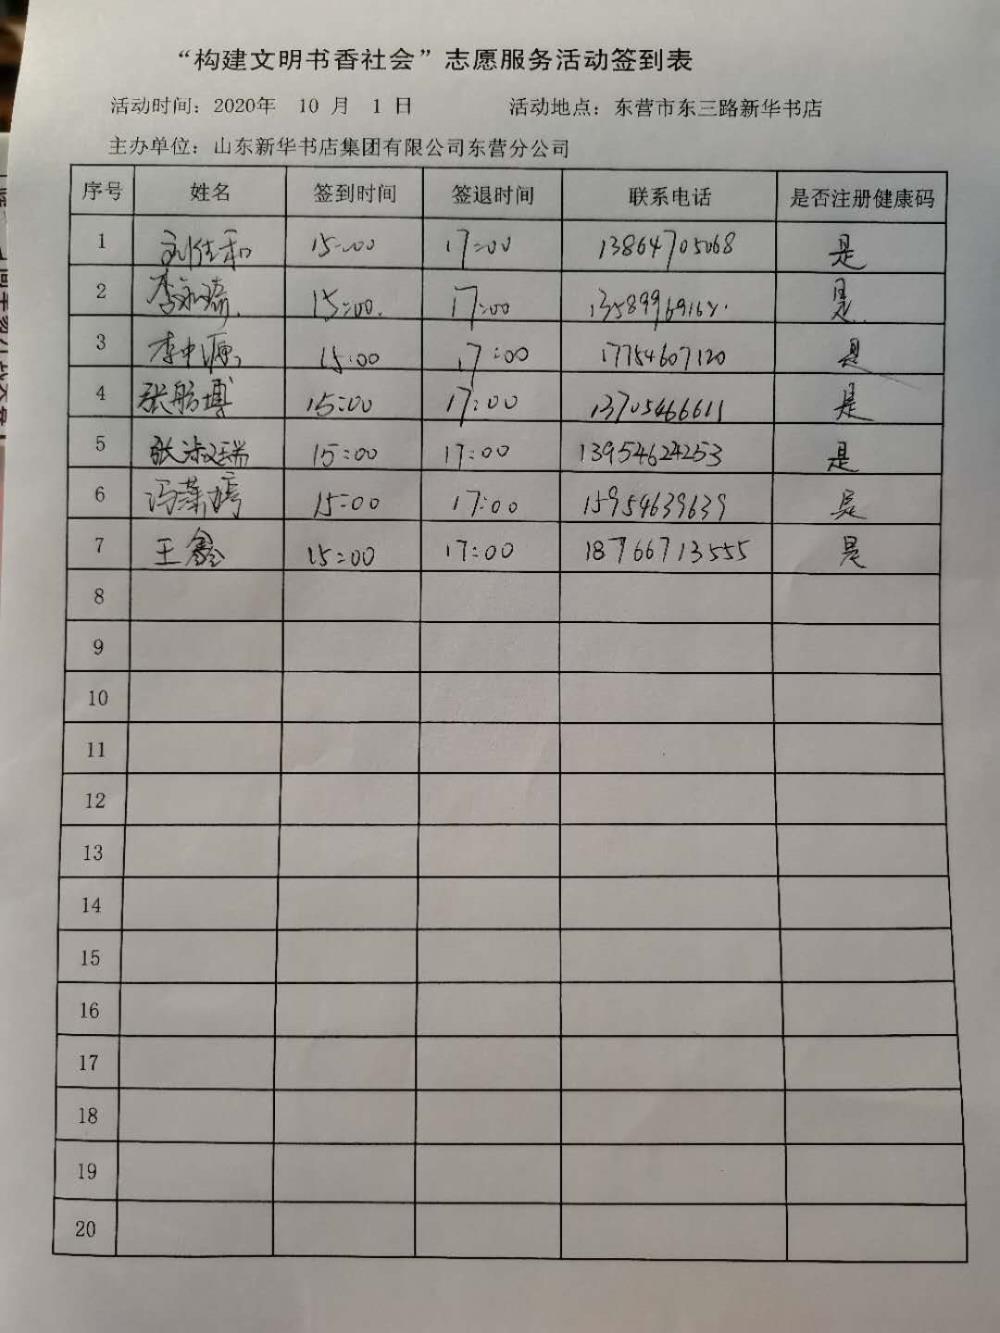 “构建文明书香社会”志愿服务活动签到表
活动时间：2020年 10 月 1 日 活动地点：东营市东三路新华书店
主办单位：山东新华书店集团有限公司东营分公司
序号 姓名 签到时间 签退时间 联系电话 是否注册健康码
1 刘佳和 15:00 17:00 13864705068 是
2 李 15:00 17:00 是
3 李中源 15:00 17:00 17754607120 是
4 张舫博 15:00 17:00 13705466611 是
5 张淑瑞 15:00 17:00 13954624253 是
6 冯 15:00 17:00 15954639639 是
7 王鑫 15:00 17:00 18766713555 是
8
9
10
11
12
13
14
15
16
17
18
19
20